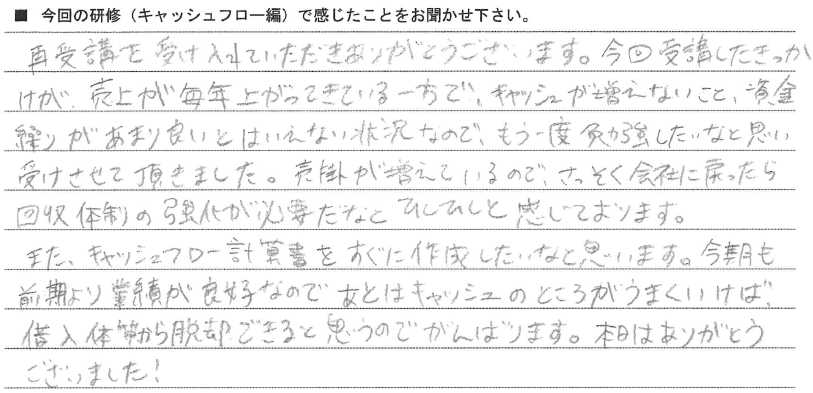 ■ 今回の研修（キャッシュフロー編）で感じたことをお聞かせ下さい。
再受講を受け入れていただきありがとうございます。今回受講したきっか
けが、売上が毎年上がってきている一方で、キャッシュが増えないこと、資金
繰りがあまり良いとはいえない状況なので、もう一度勉強したいなと思い
受けさせて頂きました。売掛が増えているので、さっそく会社に戻ったら
回収体制の強化が必要だなとひしひしと感じております。
また、キャッシュフロー計算書をすぐに作成したいなと思います。今期も
前期より業績が良好なのであとはキャッシュのところがうまくいけば、
借入体質から脱却できると思うのでがんばります。本日はありがとう
ございました！